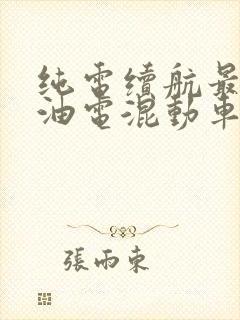 纯電續航最
油電混動車
張雨東